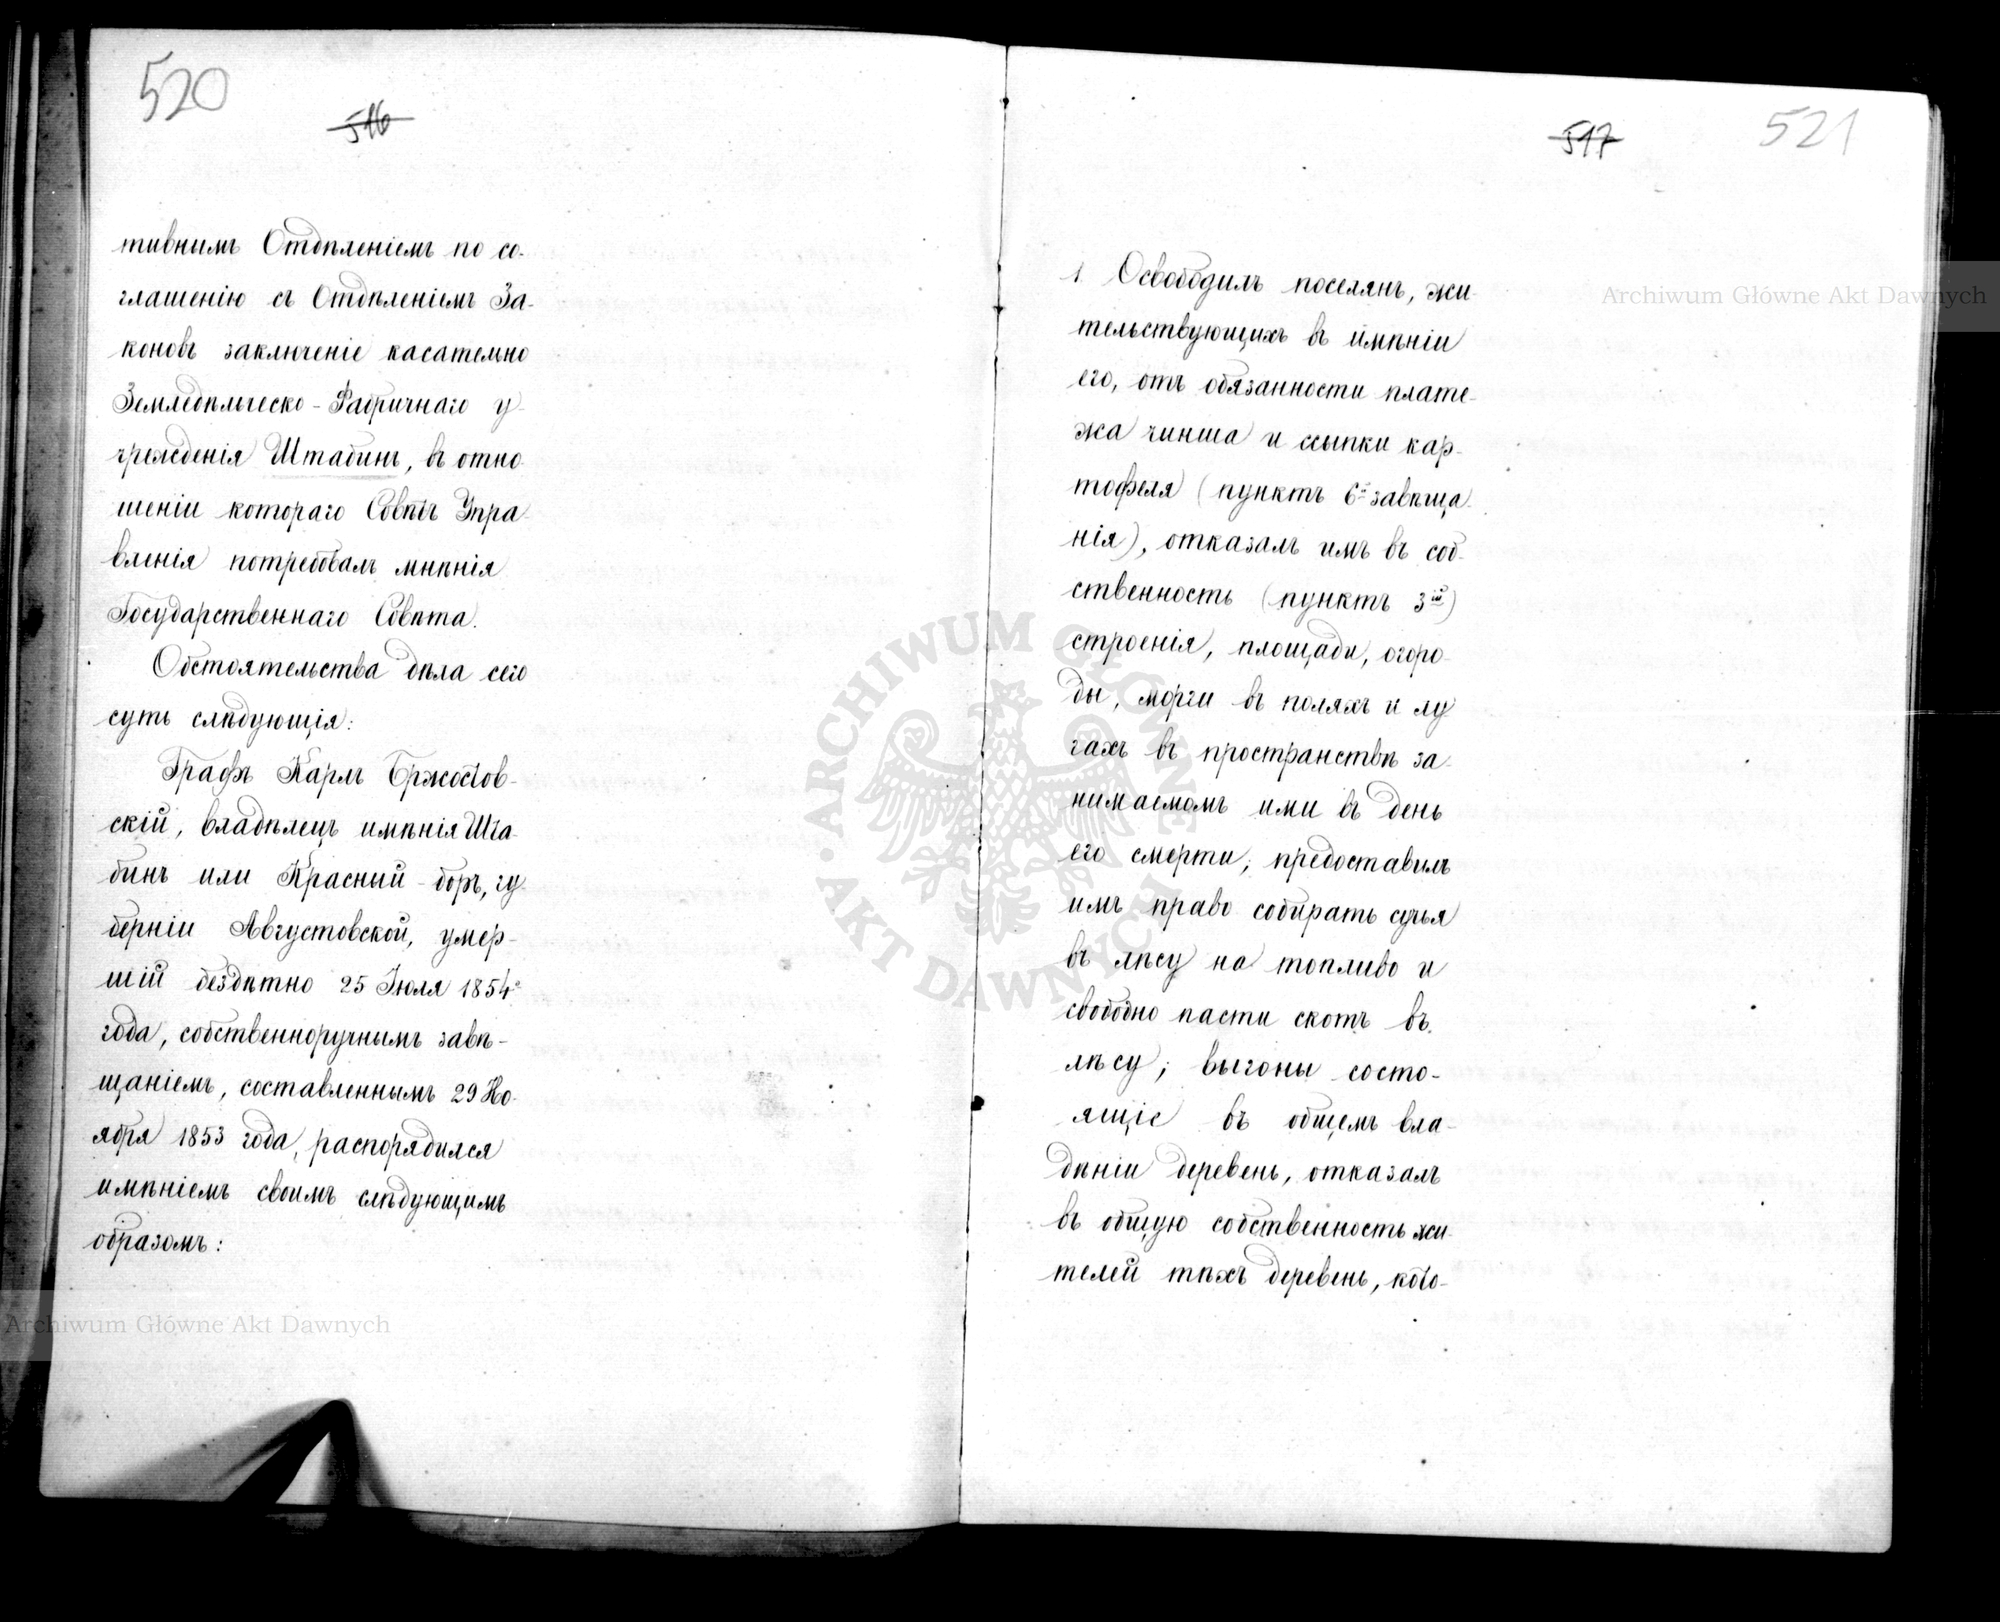 520
516
тивнымъ Отдѣленіемъ по со-
глашенію съ Отдѣленіемъ За-
коновъ заключеніе касательно
Земледѣльческо-Фабричнаго у-
чрежденія Штабинъ, въ отно-
шеніи котораго Совѣтъ Упра-
вленія потребовалъ мнѣнія
Государственнаго Совѣта.
Обстоятельства дѣла сего
суть слѣдующія:
Графъ Карлъ Бржостов-
скій, владѣлецъ имѣнія Шта-
бинъ или Красный-боръ, гу-
берніи Августовской, умер-
шій бездѣтно 25 Іюля 1854г
года, собственноручнымъ завѣ-
щаніемъ, составленнымъ 29 Но-
ября 1853 года, распорядился
имѣніемъ своимъ слѣдующимъ
образомъ:
517
521
1. Освободилъ поселянъ, жи-
тельствующихъ въ имѣніи
его, отъ обязанности плате-
жа чинша и ссыпки кар-
тофеля (пунктъ 6й завѣща-
нія), отказалъ имъ въ соб-
ственность (пунктъ 3ій)
строенія, площади, огоро-
ды, морги въ поляхъ и лу
гахъ въ пространствѣ за-
нимаемомъ ими въ день
его смерти; предоставилъ
имъ право собирать сучья
въ лѣсу на топливо и
свободно пасти скотъ въ
лѣсу; выгоны состо-
ящіе въ общемъ вла-
дѣніи деревень, отказалъ
въ общую собственность жи-
телей тѣхъ деревень, кото-
Archiwum Główne Akt Dawnych
Archiwum Główne Akt Dawnych
ARCHIWUM GŁÓWNE AKT DAWNYCH